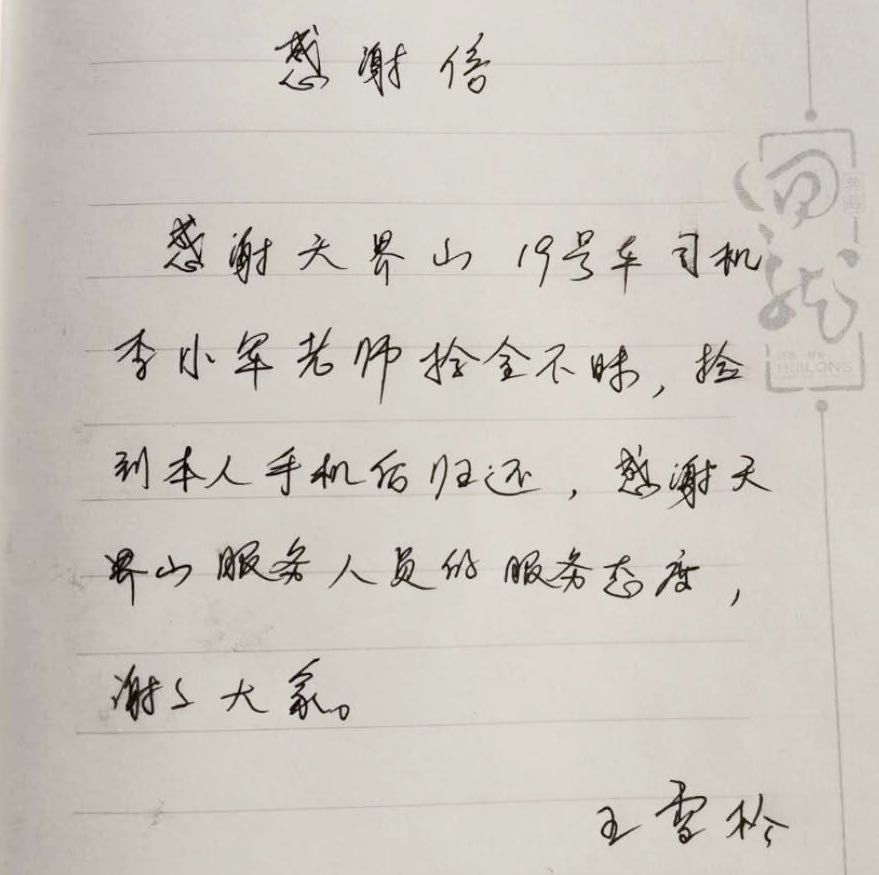 感谢信
感谢天界山 19号车司机
李小军老师拾金不昧，捡
到本人手机后归还，感谢天
界山服务人员的服务态度，
谢谢大家。
王雪
回龙
HUILONG